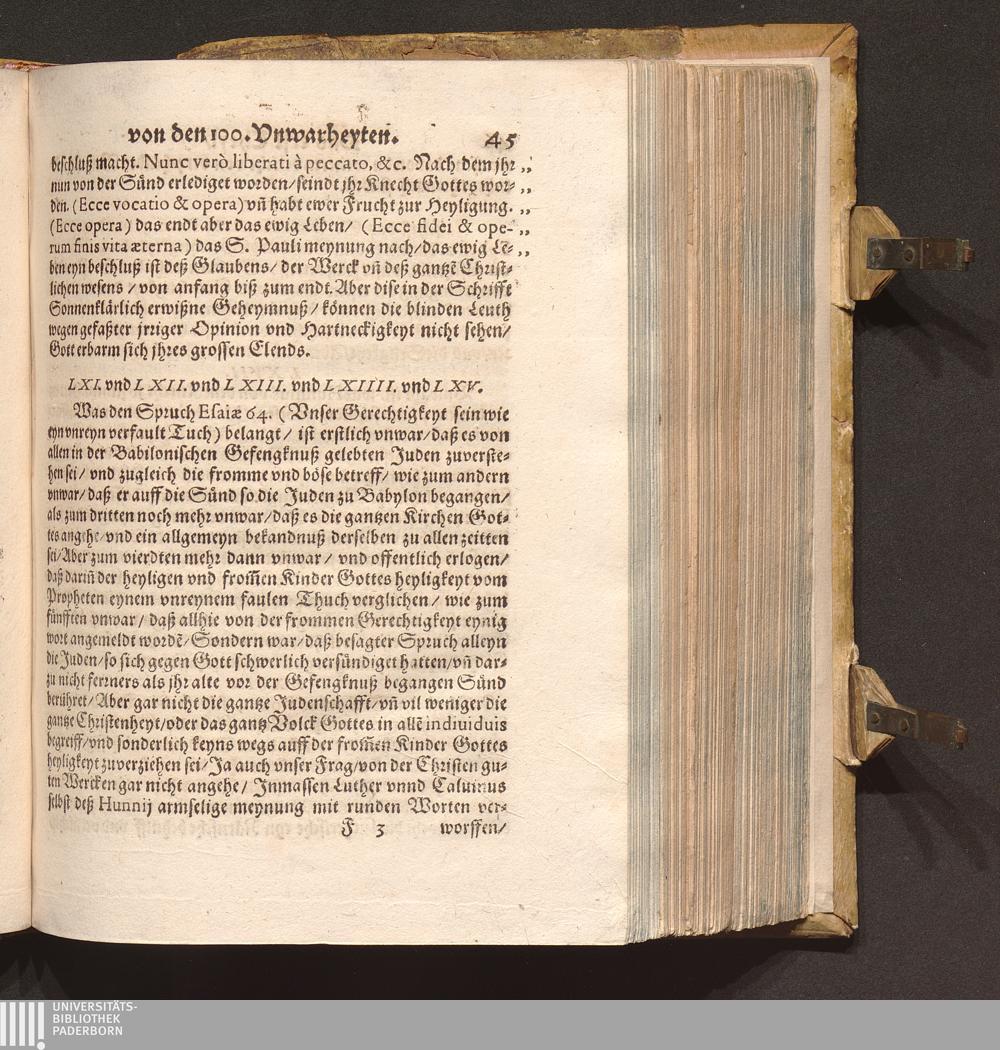 von den 100. Vnwarheyten. 45
beschluß macht. Nunc verò liberati à peccato, &c. Nach dem jhr „
nun von der Sünd erlediget worden/ seindt jhr Knecht Gottes wor- „
den. (Ecce vocatio & opera) vñ habt ewer Frucht zur Heyligung. „
(Ecce opera) das endt aber das ewig Leben/ (Ecce fidei & ope- „
rum finis vita æterna) das S. Pauli meynung nach/ das ewig Lē- „
ben eyn beschluß ist deß Glaubens/ der Werck vñ deß gantzē Christ-
lichen wesens / von anfang biß zum endt. Aber dise in der Schrifft
Sonnenklärlich erwißne Geheymnuß/ können die blinden Leuth
wegen gefaßter jrriger Opinion vnd Hartneckigkeyt nicht sehen/
Gott erbarm sich jhres grossen Elends.
LXI. vnd LXII. vnd LXIII. vnd LXIIII. vnd LXV.
Was den Spruch Esaiæ 64. (Vnser Gerechtigkeyt sein wie
eyn vnreyn verfault Tuch) belangt/ ist erstlich vnwar/ daß es von
allen in der Babilonischen Gefengknuß gelebten Juden zuverste-
hen sei/ vnd zugleich die fromme vnd böse betreff/ wie zum andern
vnwar/ daß er auff die Sünd so die Juden zu Babylon begangen/
als zum dritten noch mehr vnwar/ daß es die gantzen Kirchen Got-
tes angehe/ vnd ein allgemeyn bekandnuß derselben zu allen zeitten
sei/ Aber zum vierdten mehr dann vnwar / vnd offentlich erlogen/
daß dariñ der heyligen vnd from̃en Kinder Gottes heyligkeyt vom
Propheten eynem vnreynem faulen Thuch verglichen/ wie zum
fünfften vnwar/ daß allhie von der frommen Gerechtigkeyt eynig
wort angemeldt wordē/ Sondern war/ daß besagter Spruch alleyn
die Juden/ so sich gegen Gott schwerlich versündiget hatten/ vñ dar-
zu nicht ferrners als jhr alte vor der Gefengknuß begangen Sünd
berühret/ Aber gar nicht die gantze Judenschafft/ vñ vil weniger die
gantze Christenheyt/ oder das gantz Volck Gottes in allē indiuiduis
begreiff/ vnd sonderlich keyns wegs auff der from̃en Kinder Gottes
heyligkeyt zuverziehen sei/ Ja auch vnser Frag/ von der Christen gu-
ten Wercken gar nicht angehe/ Inmassen Luther vnnd Caluinus
selbst deß Hunnij armselige meynung mit runden Worten ver-
F 3 worffen/
UNIVERSITÄTS-
BIBLIOTHEK
PADERBORN